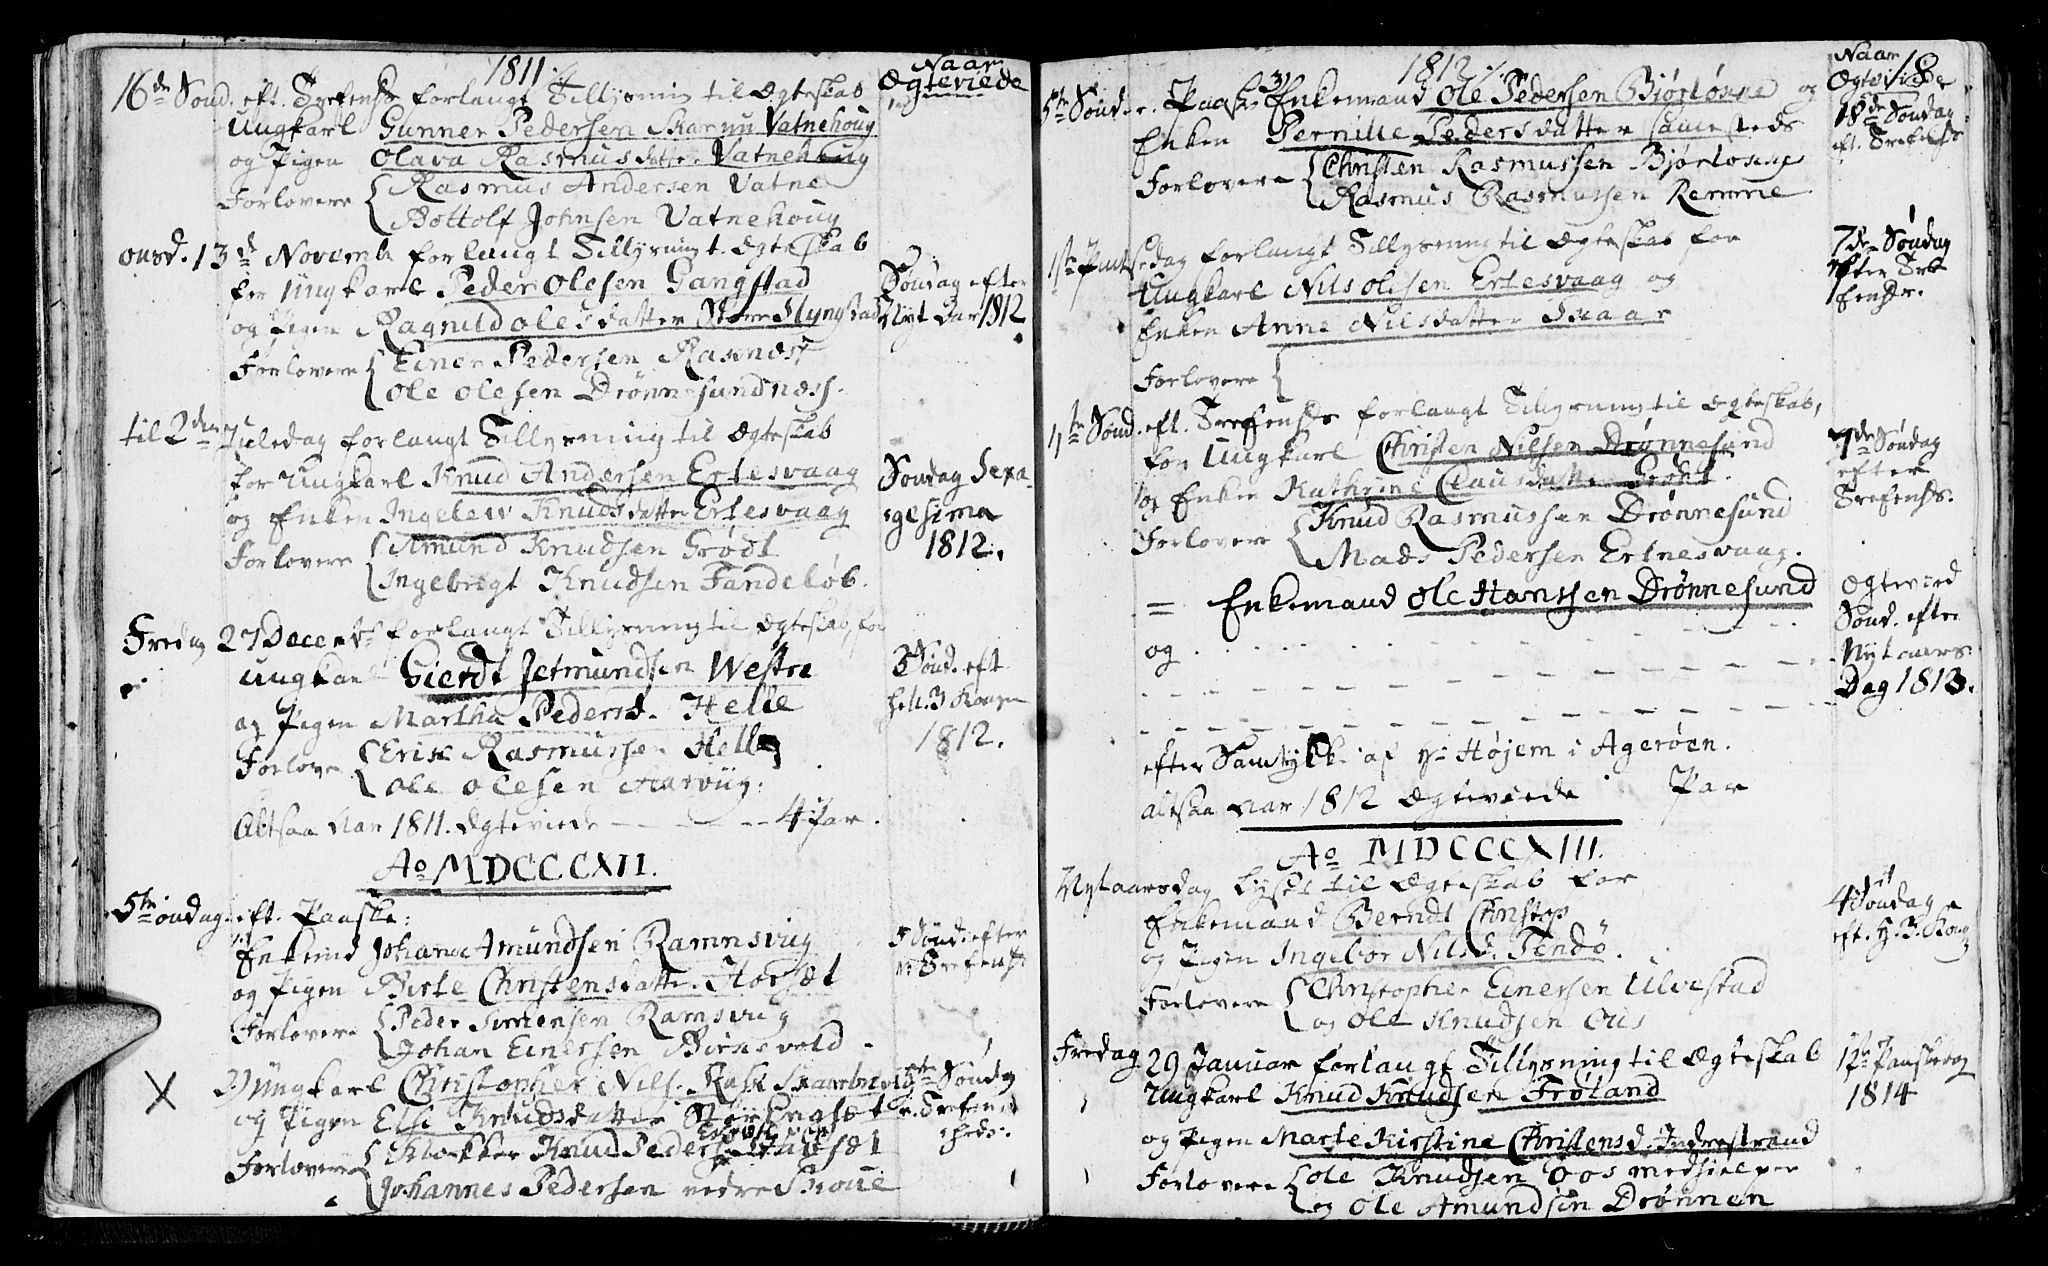 1811 ./.
Naar
Ogteviede
16de Sønd. eft. Trefenhs forlangt Tillysning til Ogteskab
Ungkarl Gunner Pedersen Vatnehoug
og Pigen Olava Rasmusdatter Vatnehoug
Forlovere Rasmus Andersen Vatne
Bottolf Johnsen Vatnehoug
onsd. 13de Novemb forlangt Tillysning t. Ogteskab
for Ungkarl Peder Olesen Gangstad
og Pigen Ragnild Olesdatter Store Hyngstad
Forlovere Einer Pedersen Rasness
Ole Olesen Drønnesundness.
Søndag efter
Nyt Aar 1812
til 2den Juledag forlangt Tillysning til Ogteskab
for Ungkarl Knud Andersen Ertesvaag
og Enken Ingelev Knudsdatter Ertesvaag
Forlovere Amund Knudsen Grødt
Ingebrigt Knudsen Tandeløb.
Søndag Sexa-
gesima
1812.
Fredag 27 Decembr forlangt Tillysning til Ogteskab, for
Ungkarl Gierdt Jetmundsen Westre
og Pigen Martha Pedersd. Helle
Forlovere Erik Rasmussen Helle
Ole Olesen Harviig.
3 Sønd. eft
hell. 3 Konger
1812.
Altsaa Aar 1811. Ogteviede - - - - 4 Par.
Ao MDCCCXII.
5te Søndag eft. Paaske:
Enkemd Johan Amundsen Ramnsviig
og Pigen Birte Christensdatter Horsæt
Forlovere Peder Simensen Ramsviig
Johan Einersen Birnevold
5 Sønd. efter
Trefenh.
X 2) Ungkarl Christopher Nils.
og Pigen Else Knudsdatter
Forlovere Klokker Knud Peders
Johannes Pedersen nedre Froue
5te Søndag
e. Trefenig
heds.
1812 ./.
Naar 18
Ogteviede
5te Sønd. e. Paaske 3) Enkemand Ole Pedersen Bjørløsne og
Enken Pernille Pedersdatter samesteds
Forlovere Christen Rasmussen Bjørløsne
Rasmus Rasmussen Remme
18de Søndag
eft. Trefenhs
1ste Pintsedag forlangt Tillysning til Ogteskab for
Ungkarl Nils Olesen Ertesvaag og
Enken Anne Nilsdatter Skaar
Forlovere
7de Søndag
efter Tre
fenhr.
4te Sønd. eft. Trefenhds forlangt Tillysning til Ogteskab,
for Ungkarl Christen Nilsen Drønnesund
og Enken Kathrine Clausdatter
Forlovere Knud Rasmussen Drønnesund
Mads Pedersen Ertnesvaag.
7de Søndag
efter
Trefenhds.
= Enkemand Ole Hanssen Drønnesund
og
Ogteviet
Sønd. efter
Nytaars
Dag 1813.
efter Samtykke af Hr Højem i Agerøen.
altsaa Aar 1812 Ogteviede Par
Ao MDCCCXIII.
Nytaarsdag Lyst til Ogteskab for
Enkemand Berndt Christop
og Pigen Ingebor Nilsd. Tendø.
Forlovere Christopher Einersen Ulvestad
og Ole Knudsen Ous
4 Søndag
eft. H. 3. Kong
Fredag 29 Januar forlangt Tillysning til Ogteskab
Ungkarl Knud Knudsen Frøland
og Pigen Marte Kirstine Christensd. Indrestrand
Forlovere Ole Knudsen Oos medhielper
og Ole Amundsen Drønnen
1ste Paaskedag
1814